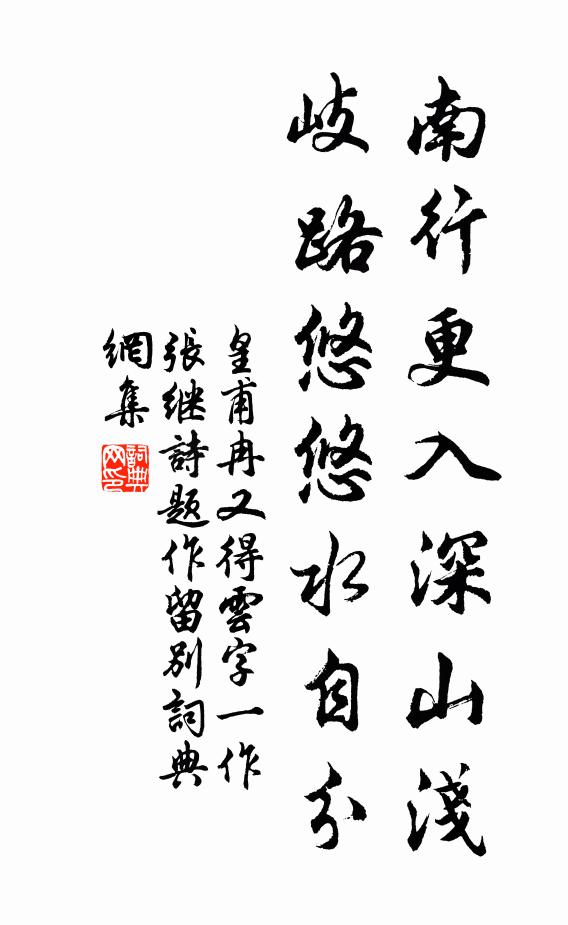 南行更入深山淺
岐路悠悠水自分
皇甫冉又得雲字一作
張继詩题作留别詞典
網集
詞典
网印